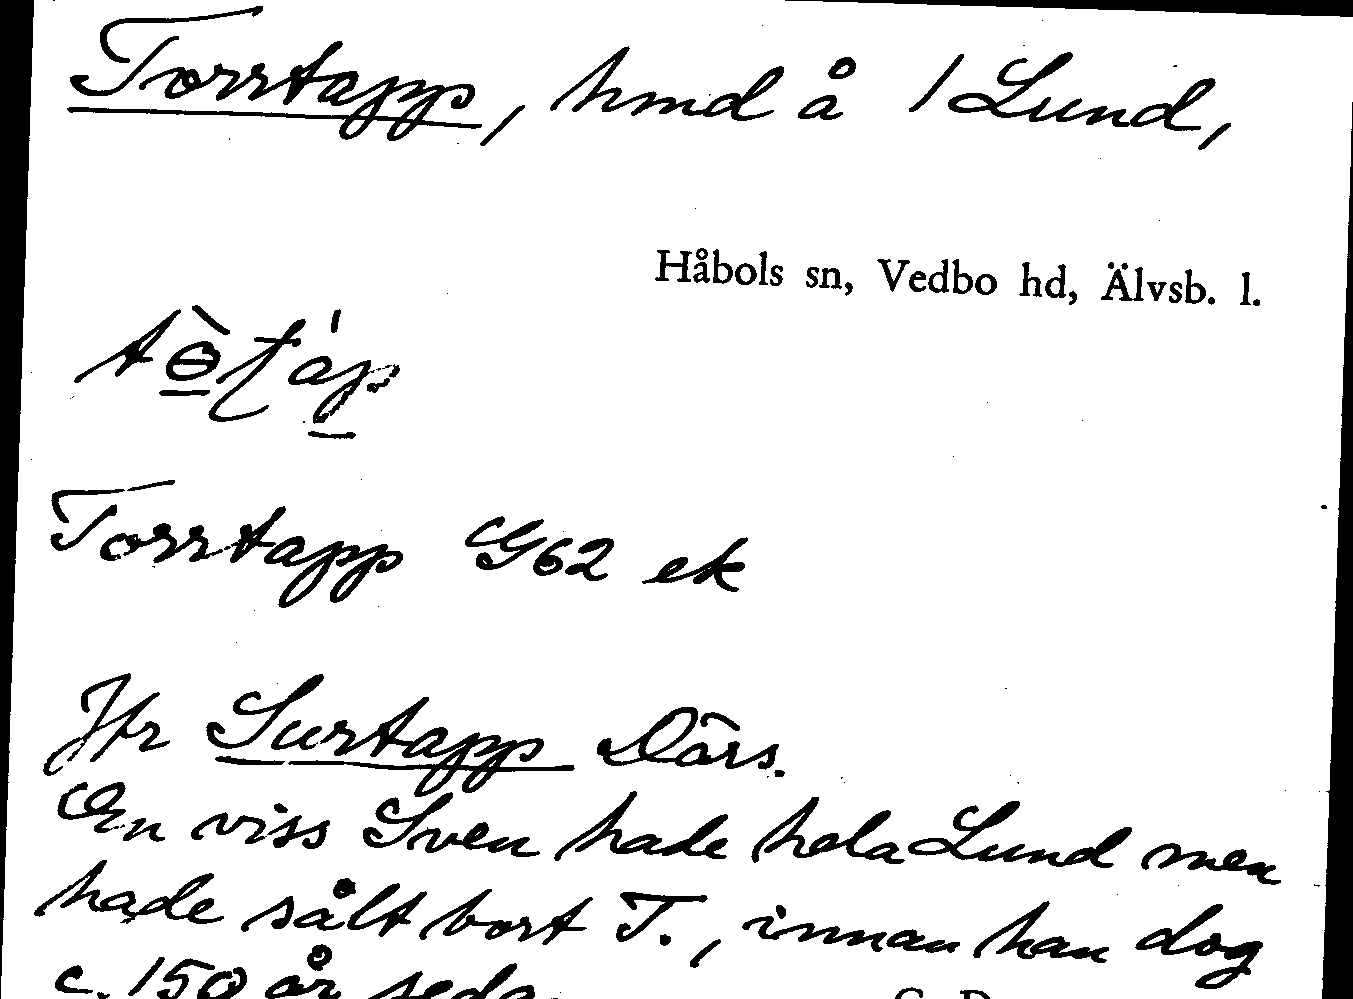 Torrtapp, hmd å 1 Lund,
Håbols sn, Vedbo hd, Älvsb. l.
Torrtapp G62 ek
Jfr Surtapp Därs.
En viss Sven hade hela Lund men
hade sålt bort T., innan han dog
c. 150 år